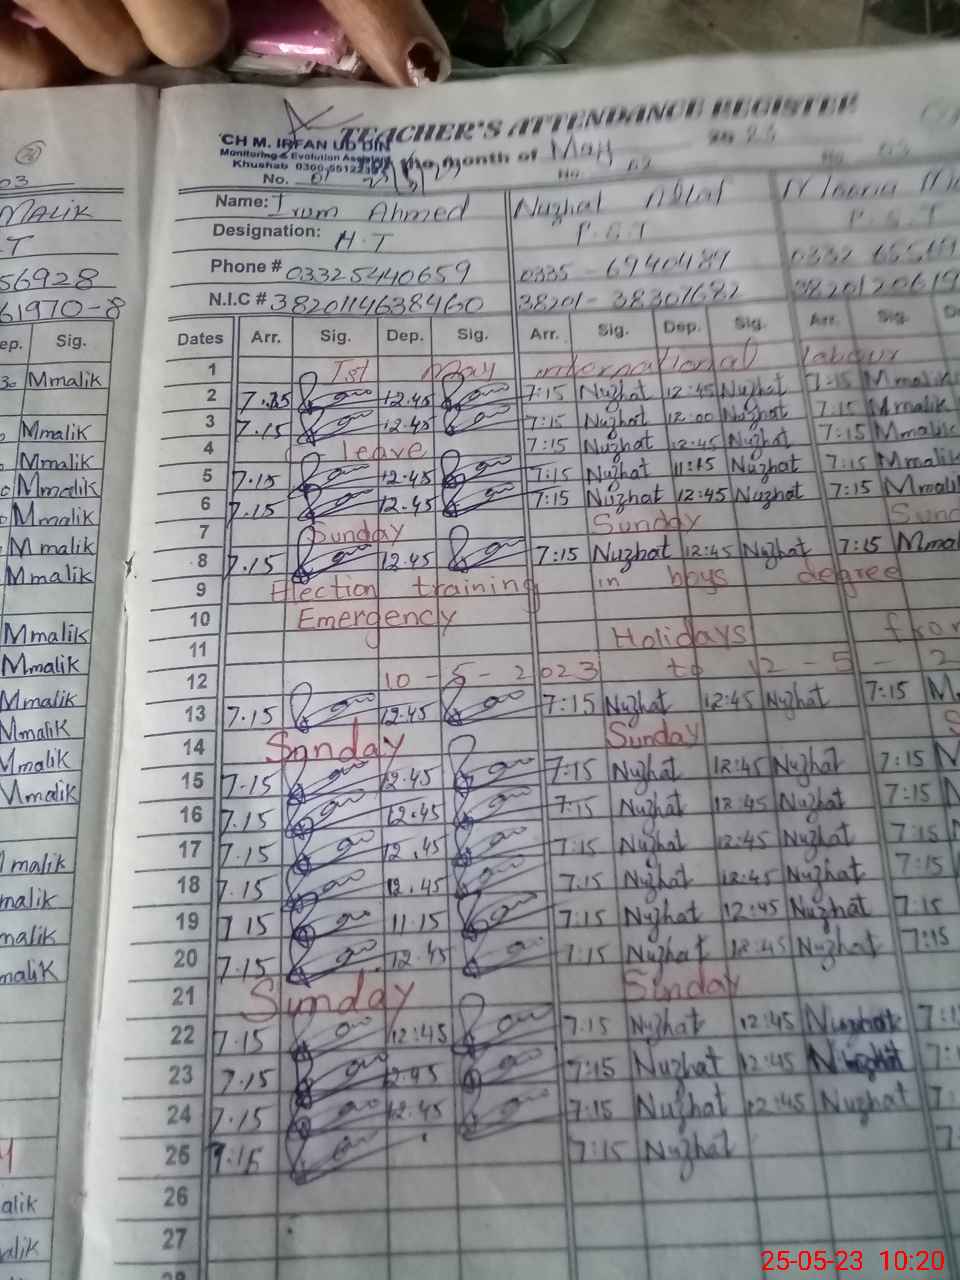 TEACHER'S ATTENDANCE REGISTER
CH M. IRFAN UD DIN
Monitoring & Evolution
Khushab
the month of May
No. 01 No. 02 No. 03
03
MALIK Name: Irum Ahmed Nuzhat
T Designation: H.T P.S.T P.S.T
56928 Phone # 03325440659 0335-6940489 0332
61970-8 N.I.C # 3820114638460 38201-38307682
ep. Sig. Dates Arr. Sig. Dep. Sig. Arr. Sig. Dep. Sig. Arr. Sig.
1 1st May international labour
Mmalik 2 12.45 7:15 Nuzhat 12:45 Nuzhat 7:15 Mmalik
3 7.15 12.45 7:15 Nuzhat 12:00 Nuzhat 7:15 Mmalik
Mmalik 4 leave 7:15 Nuzhat 12:45 Nuzhat 7:15 Mmalik
Mmalik 5 7.15 12.45 7:15 Nuzhat 11:15 Nuzhat 7:15 Mmalik
Mmalik 6 7.15 12.45 7:15 Nuzhat 12:45 Nuzhat 7:15 Mmali
Mmalik 7 Sunday Sunday Sund
Mmalik 8 7.15 12.45 7:15 Nuzhat 12:45 Nuzhat 7:15 Mma
Mmalik 9 Election training in boys degree
10 Emergency
Mmalik 11 Holidays from
Mmalik 12 10-5-2023 to 12-5-2
Mmalik 13 7.15 12.45 7:15 Nuzhat 12:45 Nuzhat 7:15 M
Mmalik 14 Sunday Sunday S
Mmalik 15 7.15 12.45 7:15 Nuzhat 12:45 Nuzhat 7:15
Mmalik 16 7.15 12.45 7:15 Nuzhat 12:45 Nuzhat 7:15
17 7.15 12.45 7:15 Nuzhat 12:45 Nuzhat 7:15
malik 18 7.15 12.45 7:15 Nuzhat 12:45 Nuzhat 7:15
malik 19 7 15 11.15 7:15 Nuzhat 12:45 Nuzhat 7:15
malik 20 7.15 12.45 7:15 Nuzhat 12:45 Nuzhat 7:15
malik 21 Sunday Sunday
22 7.15 12:45 7:15 Nuzhat 12:45 Nuzhat
23 7.15 12.45 7:15 Nuzhat 12:45 Nuzhat
24 7.15 12.45 7:15 Nuzhat 12:45 Nuzhat
25 7:15 Nuzhat
alik 26
alik 27
28
25-05-23 10:20